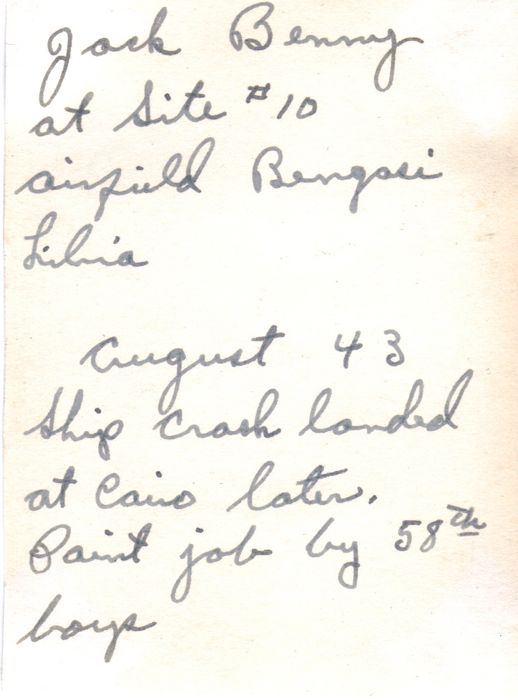 Jack Benny
at Site #10
airfield Bengasi
Libia
August 43
Ship crash landed
at Cairo later.
Paint job by 58th
boys